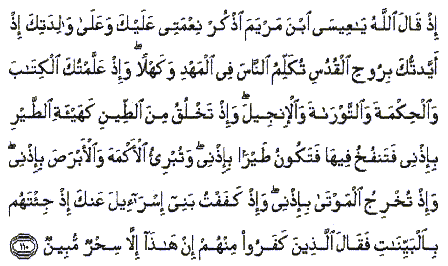 إِذْ قَالَ ٱللَّهُ يَـٰعِيسَى ٱبْنَ مَرْيَمَ ٱذْكُرْ نِعْمَتِى عَلَيْكَ وَعَلَىٰ وَٰلِدَتِكَ إِذْ
أَيَّدتُّكَ بِرُوحِ ٱلْقُدُسِ تُكَلِّمُ ٱلنَّاسَ فِى ٱلْمَهْدِ وَكَهْلًا ۖ وَإِذْ عَلَّمْتُكَ ٱلْكِتَـٰبَ
وَٱلْحِكْمَةَ وَٱلتَّوْرَىٰةَ وَٱلْإِنجِيلَ ۖ وَإِذْ تَخْلُقُ مِنَ ٱلطِّينِ كَهَيْـَٔةِ ٱلطَّيْرِ
بِإِذْنِى فَتَنفُخُ فِيهَا فَتَكُونُ طَيْرًۢا بِإِذْنِى ۖ وَتُبْرِئُ ٱلْأَكْمَهَ وَٱلْأَبْرَصَ بِإِذْنِى ۖ
وَإِذْ تُخْرِجُ ٱلْمَوْتَىٰ بِإِذْنِى ۖ وَإِذْ كَفَفْتُ بَنِىٓ إِسْرَٰٓءِيلَ عَنكَ إِذْ جِئْتَهُم
بِٱلْبَيِّنَـٰتِ فَقَالَ ٱلَّذِينَ كَفَرُوا۟ مِنْهُمْ إِنْ هَـٰذَآ إِلَّا سِحْرٌ مُّبِينٌ ١١٠